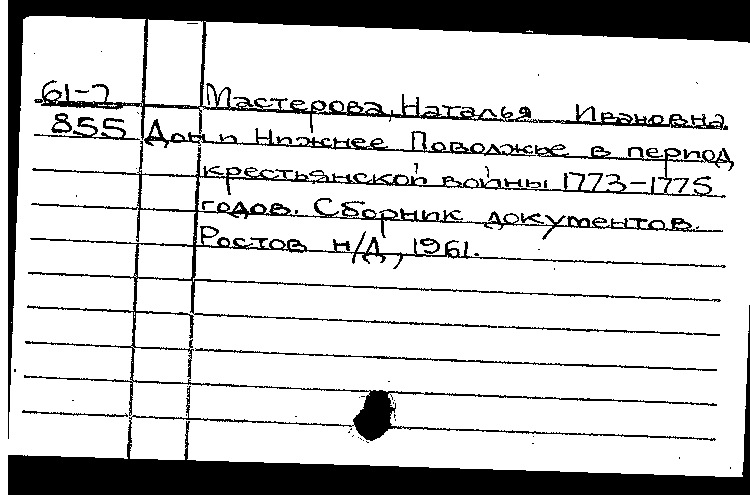 61-7 Мастерова, Наталья Ивановна.
855 Дон и Нижнее Поволжье в период
крестьянской войны 1773-1775
годов. Сборник документов.
Ростов н/Д, 1961.